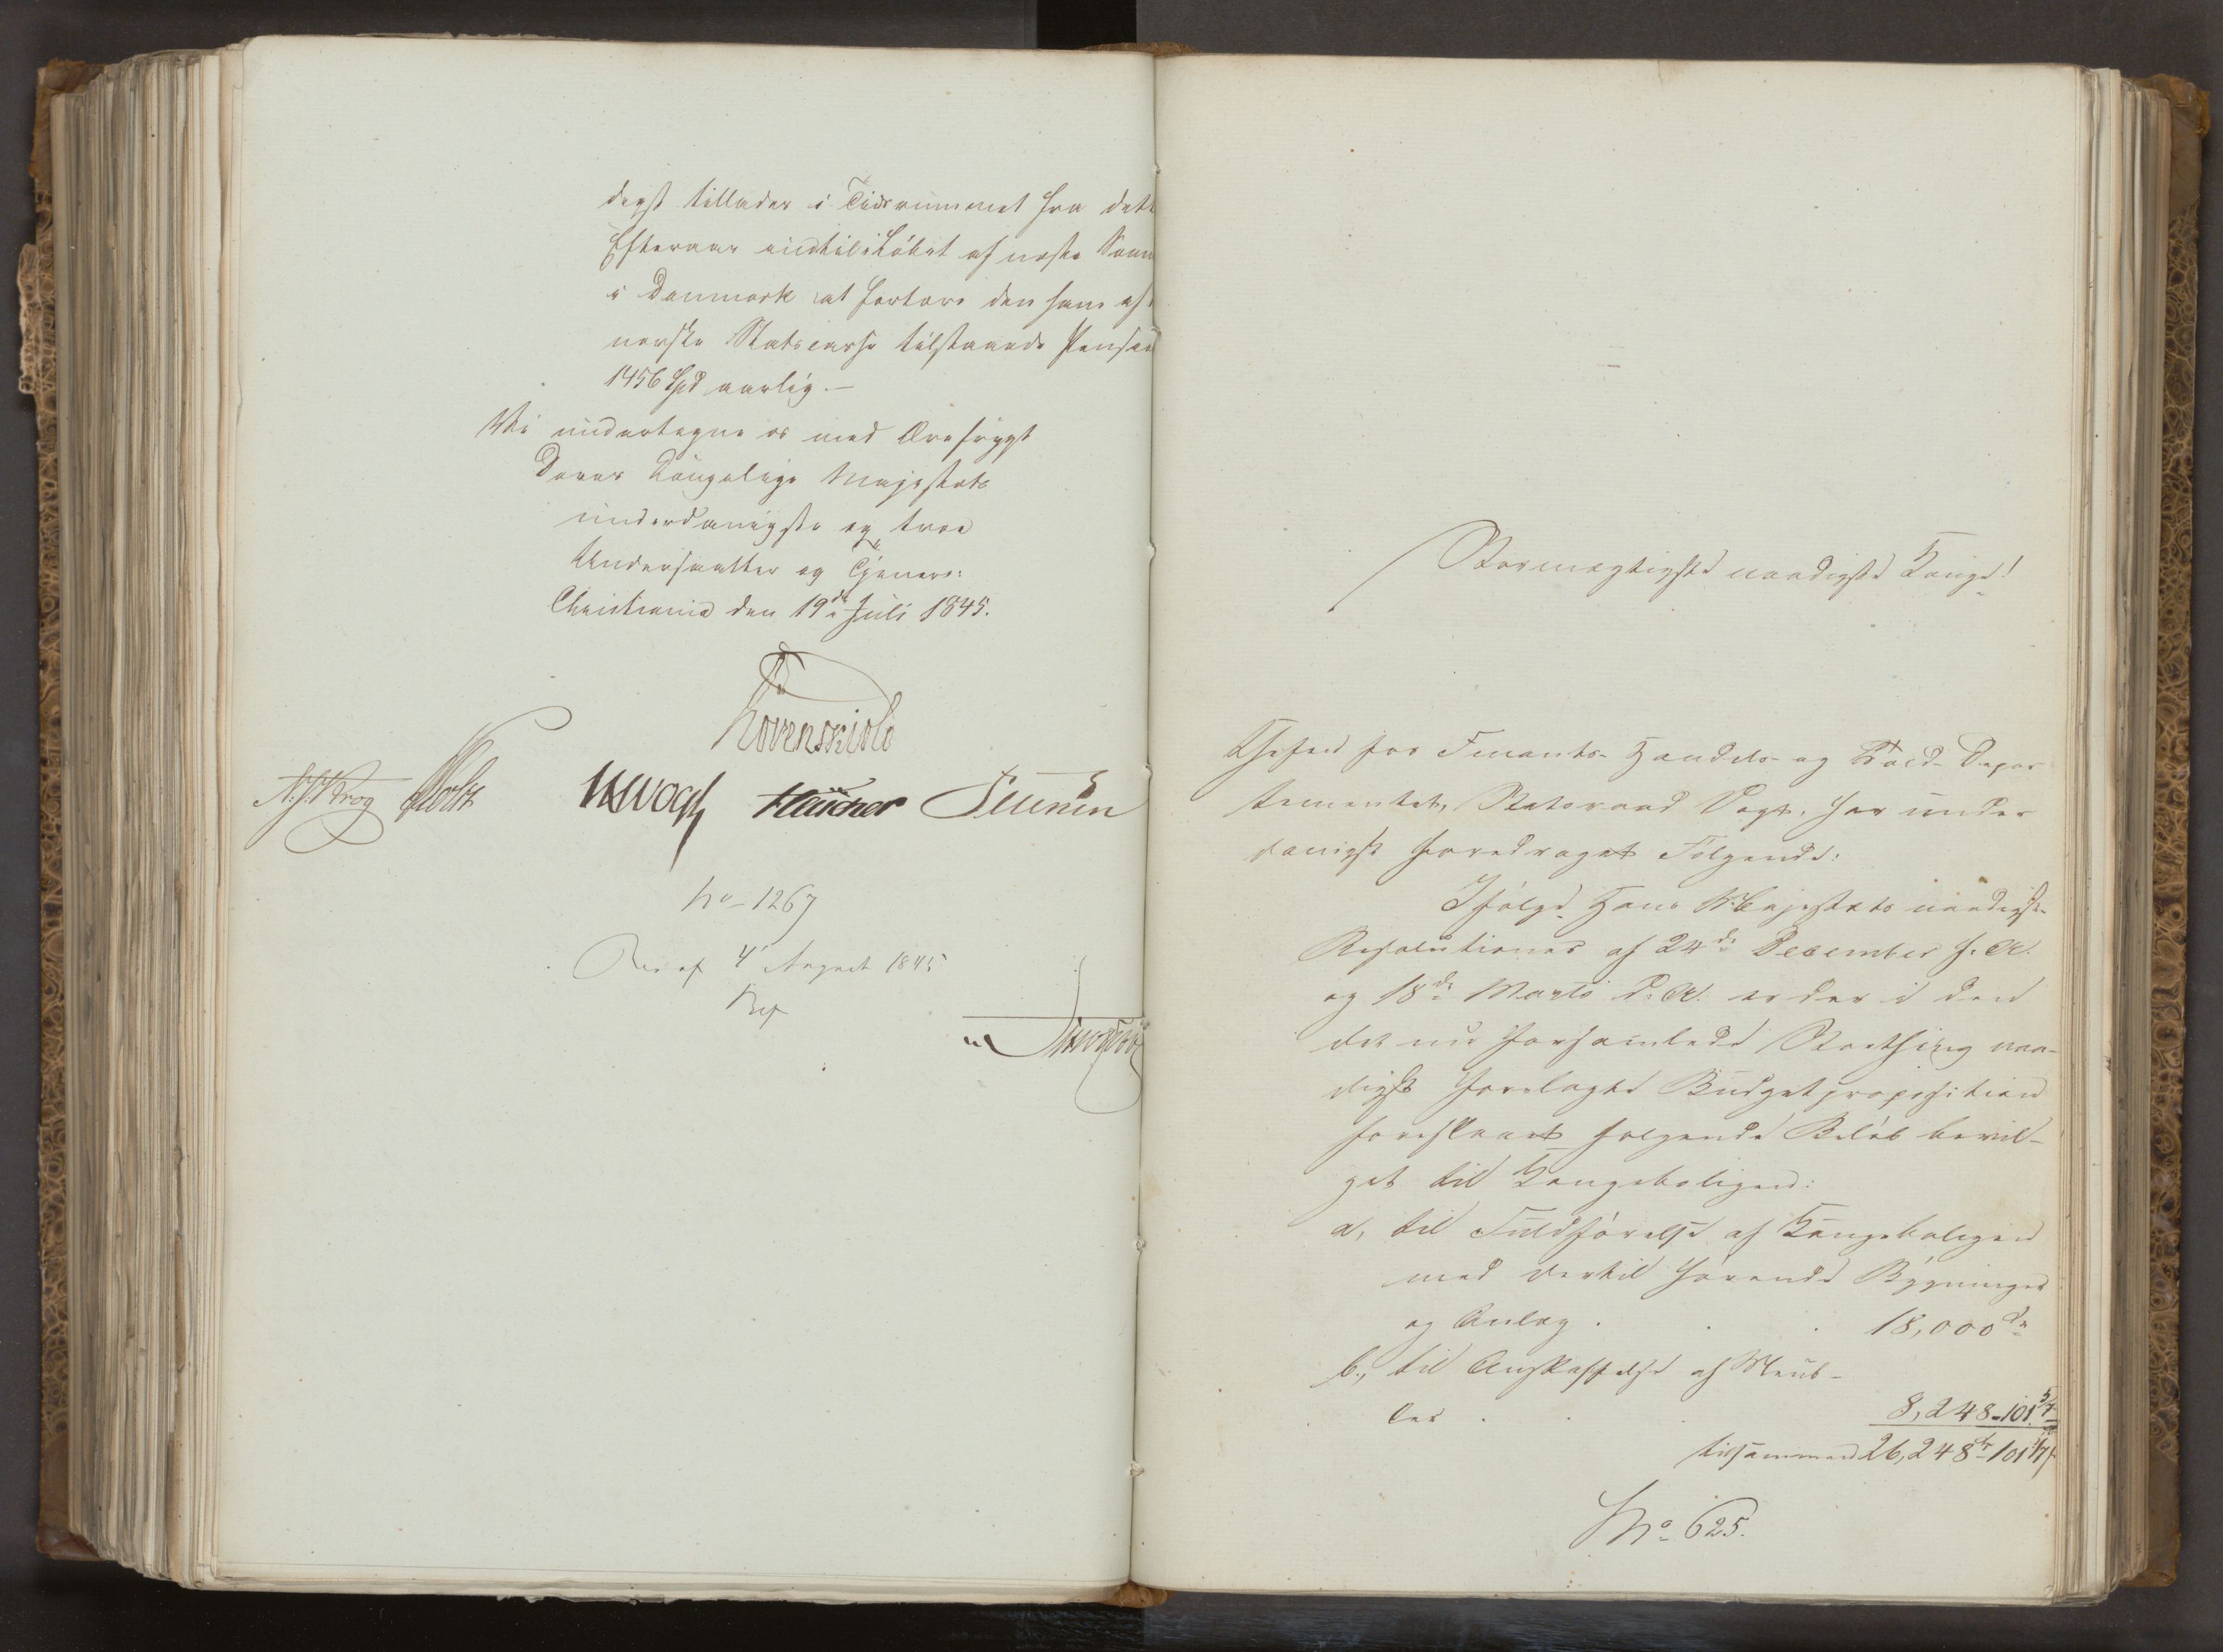 digst tillades i Tidsrummet fra dette
Efteraar indtil i Løbet af næste Som
i Danmark at fortære den ham af
norske Statscasse tilstaaede Pension
1456 Spd aarlig.—
Vi undertegne os med Ærefrygt
Deres Kongelige Majestæts
underdanigste og troe
Undersaatter og Tjenere:
Christiania den 19de Juli 1845.
Løvenskiold
Krog Holst Vogt
No 1267
Res af 4 August 1845
Stormægtigste naadigste Konge!
Chefen for Finants- Handels- og Told-Depar
tementet, Statsraad Vogt, har under
danigst foredraget Følgende:
Ifølge Hans Majestæts naadigste
Resolutioner af 24de December f. A.
og 18de Marts d. A. er der i den
det nu forsamlede Storthing naa-
digst forelagte Budgetproposition
foreslaaet følgende Beløb bevil-
get til Kongeboligen:
a, til Fuldførelse af Kongeboligen
med dertil hørende Bygninger
og Anlæg . . . 18,000 dr
b, til Anskaffelse af Meub-
ler . . . 8,248-101 5/7
tilsammen 26,248 - 101 5/7
No 625.